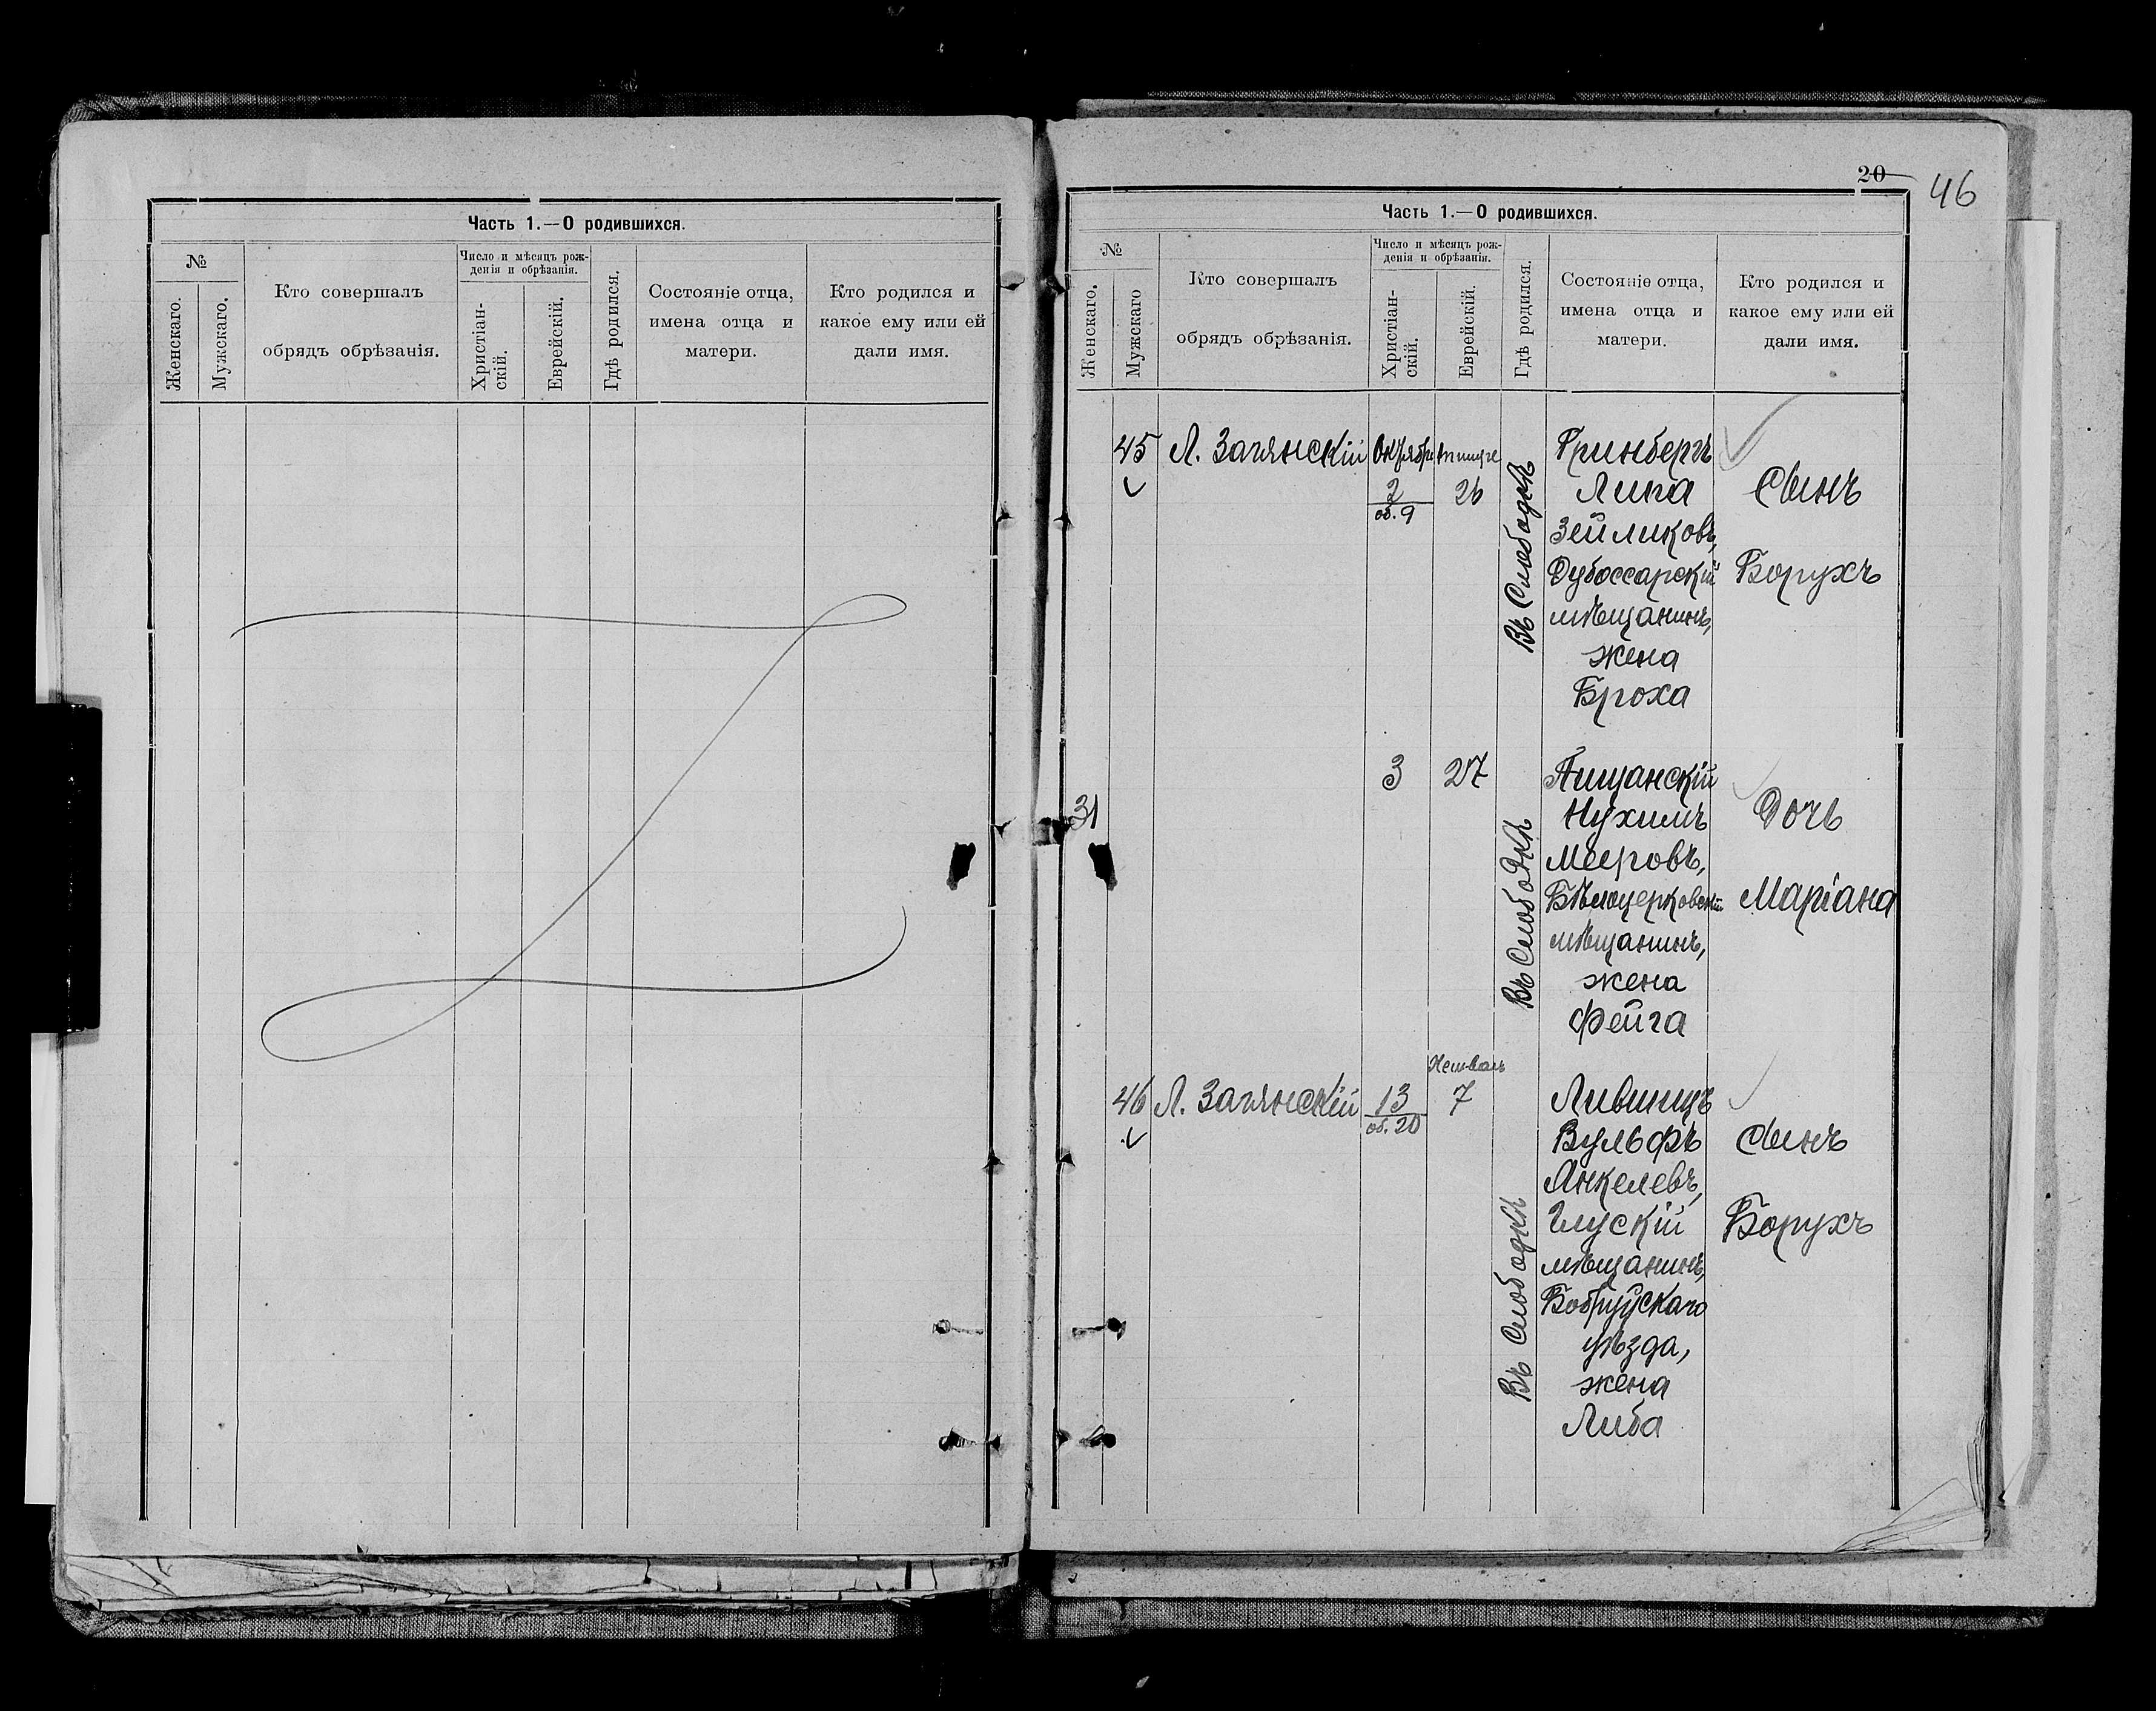 Часть 1.—О родившихся.
№
Женскаго.
Мужскаго.
Кто совершалъ
обрядъ обрѣзанія.
Число и мѣсяцъ рож-
денія и обрѣзанія.
Христіан-
скій.
Еврейскій.
Гдѣ родился.
Состояніе отца,
имена отца и
матери.
Кто родился и
какое ему или ей
дали имя.
20
46
Часть 1.—О родившихся.
№
Женскаго.
Мужскаго
Кто совершалъ
обрядъ обрѣзанія.
Число и мѣсяцъ рож-
денія и обрѣзанія.
Христіан-
скій.
Еврейскій.
Гдѣ родился.
Состояніе отца,
имена отца и
матери.
Кто родился и
какое ему или ей
дали имя.
45
Л.
Октября
2
об. 9
26
Въ Слободкѣ
Гринбергъ
Липа
Зейликовъ,
Дубоссарскій
мѣщанинъ,
жена
Броха
Сынъ
Борухъ
31
3
27
Въ Слободкѣ
Пищанскій
Нухимъ
Мееровъ,
Бѣлоцерковскій
мѣщанинъ,
жена
Фейга
Дочь
Маріана
46
Л.
13
об. 20
Хешвонъ
7
Въ Слободкѣ
Лившицъ
Вульфъ
Янкелевъ,
Глускій
мѣщанинъ,
Бобруйскаго
уѣзда,
жена
Либа
Сынъ
Борухъ